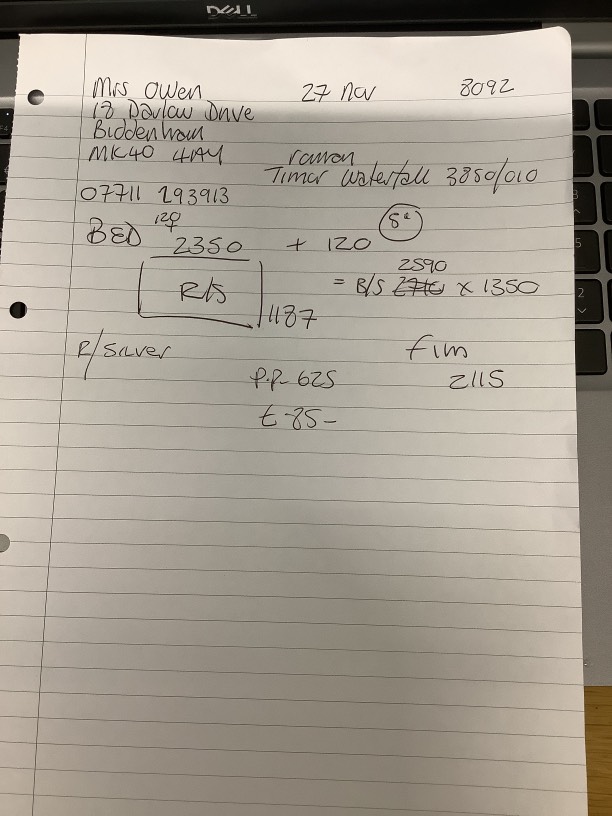 DELL
Mrs Owen 27 Nov 8092
18 Darlow Drive
Biddenham
MK40 4AY roman
Timor Waterfall 3850/010
07711 293913
120
BED 2350 + 120 8"
2590
R/S = B/S 2710 x 1350
1187
R/Silver Fim
P.P- 625 2115
t-85-